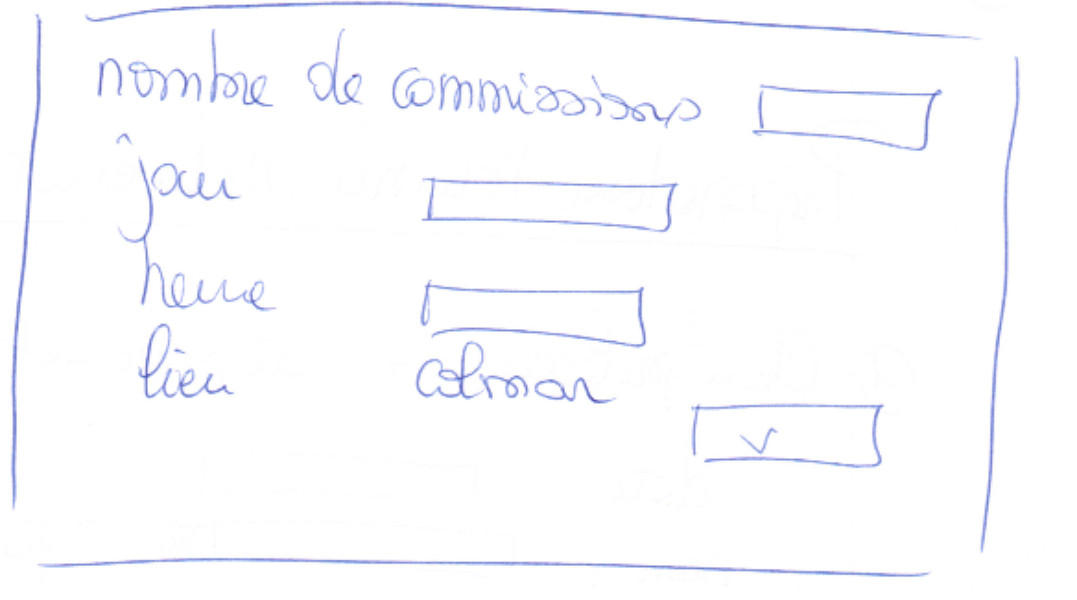 nombre de commissions
jour
heure
lieu colmar